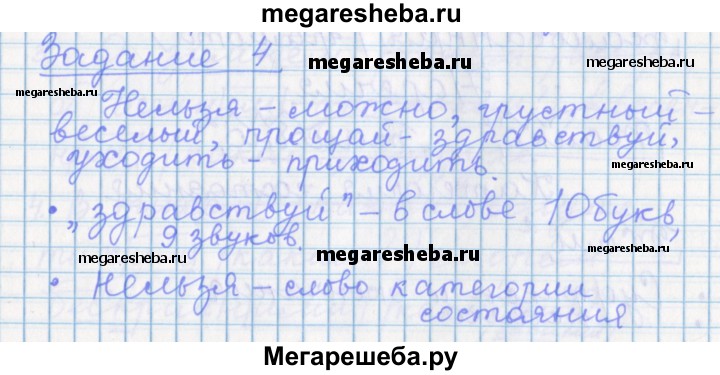 megaresheba.ru
Задание 4
megaresheba.ru megaresheba.ru
megaresheba.ru
Нельзя – можно, грустный –
веселый, прощай – здравствуй,
уходить – приходить.
megaresheba.ru
• „здравствуй" – в слове 10 букв,
9 звуков.
megaresheba.ru megaresheba.ru
• Нельзя – слово категории
состояния
Мегарешеба.ру